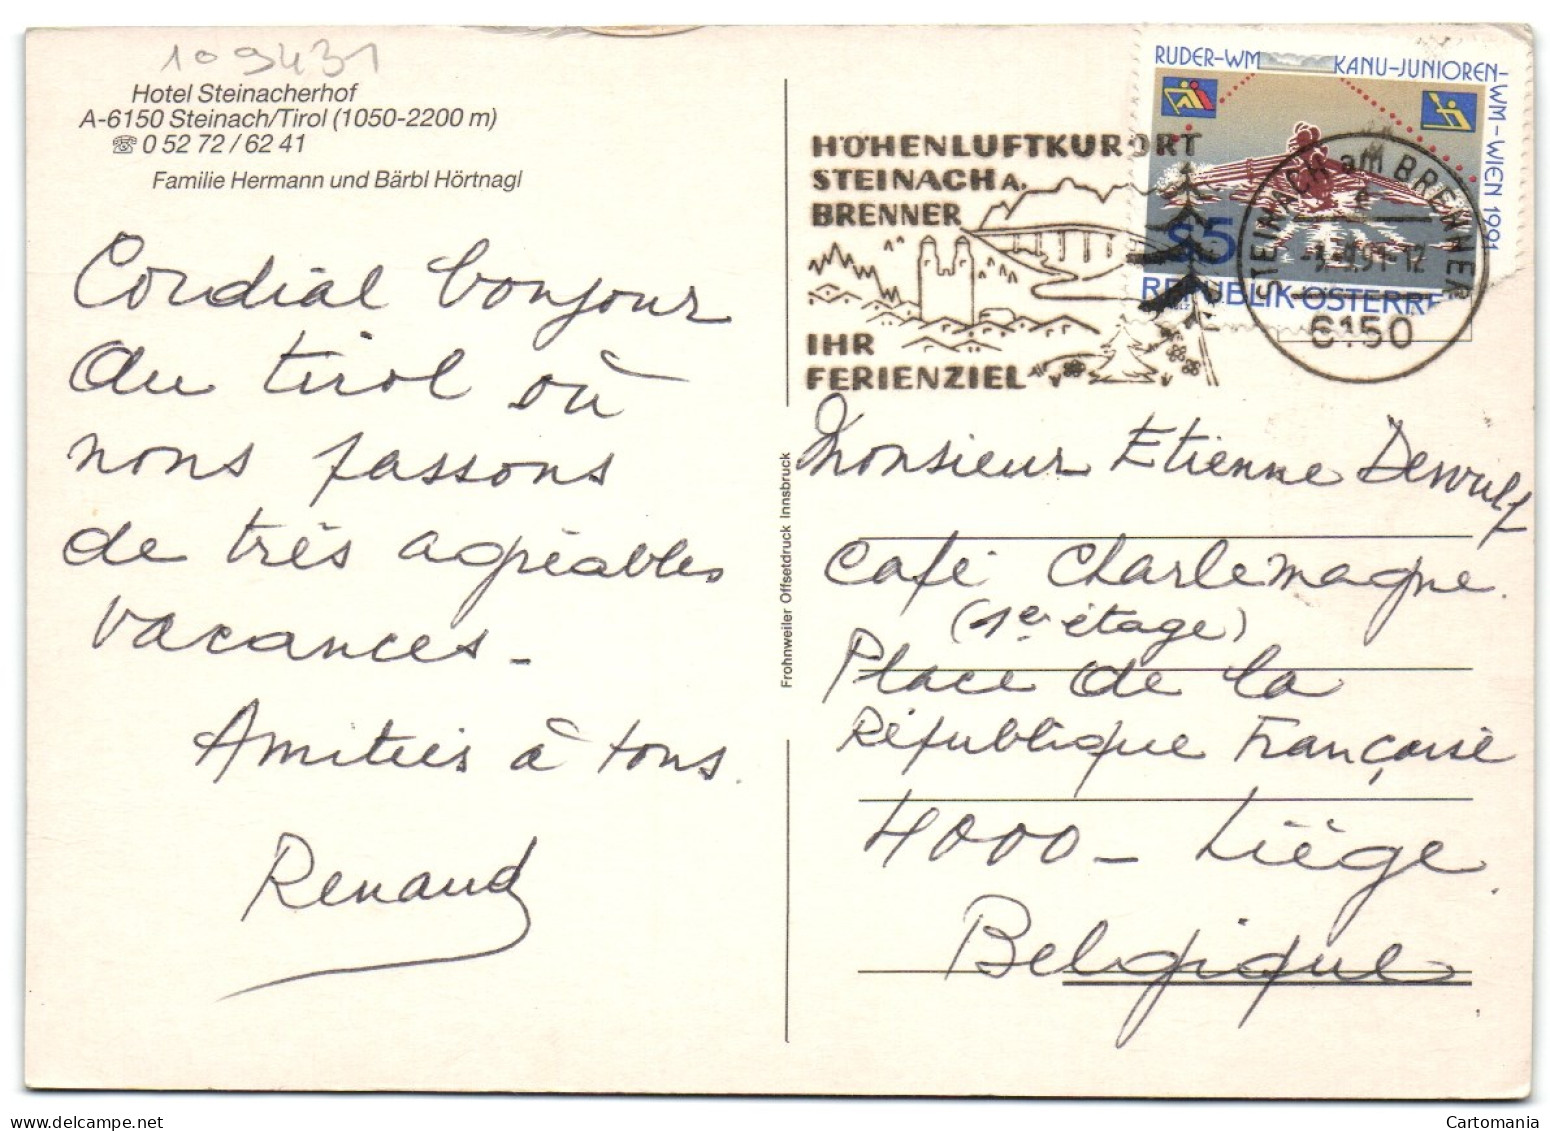 109431
Hotel Steinacherhof
A-6150 Steinach/Tirol (1050-2200 m)
☏ 0 52 72 / 62 41
Familie Hermann und Bärbl Hörtnagl
Cordial bonjour
du tirol où
nous passons
de très agréables
vacances -
Amitiés à tous.
Renaud
Frohnweiler Offsetdruck Innsbruck
HÖHENLUFTKURORT
STEINACH A.
BRENNER
IHR
FERIENZIEL
RUDER-WM KANU-JUNIOREN-WM-WIEN 1991
S5
REPUBLIK ÖSTERRE
STEINACH am BRENNER
91-12
6150
Monsieur Etienne Dewulf
Café Charlemagne.
(1er étage)
Place de la
République Française
4000 - Liège.
Belgique
Cartomania